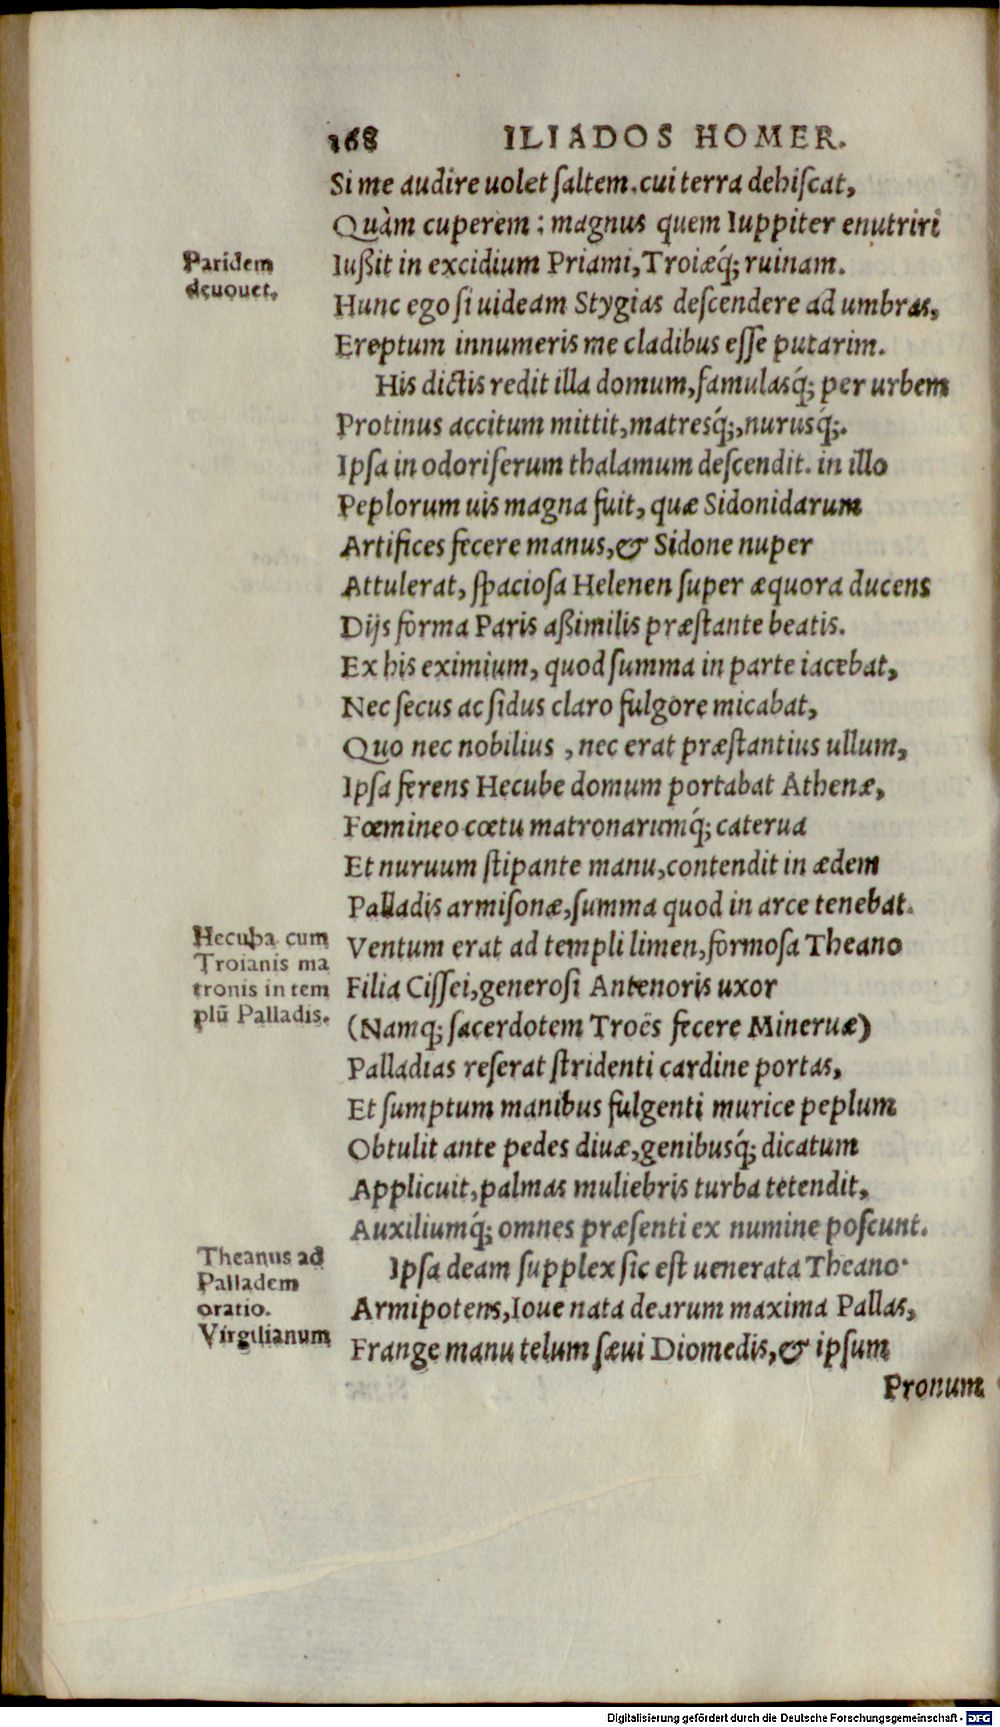 168 ILIADOS HOMER.
Si me audire uolet ſaltem. cui terra dehiſcat,
Quàm cuperem: magnus quem Iuppiter enutriri
Paridem
deuouet.
Iußit in excidium Priami, Troiæq́; ruinam.
Hunc ego ſi uideam Stygias deſcendere ad umbras,
Ereptum innumeris me cladibus eſſe putarim.
His dictis redit illa domum, famulasq́; per urbem
Protinus accitum mittit, matresq́;, nurusq́;.
Ipſa in odoriferum thalamum deſcendit. in illo
Peplorum uis magna fuit, quæ Sidonidarum
Artifices fecere manus, & Sidone nuper
Attulerat, ſpacioſa Helenen ſuper æquora ducens
Dijs forma Paris aßimilis præſtante beatis.
Ex his eximium, quod ſumma in parte iacebat,
Nec ſecus ac ſidus claro fulgore micabat,
Quo nec nobilius , nec erat præſtantius ullum,
Ipſa ferens Hecube domum portabat Athenæ,
Fœmineo cœtu matronarumq́; caterua
Et nuruum ſtipante manu, contendit in ædem
Palladis armiſonæ, ſumma quod in arce tenebat.
Hecuba cum
Troianis ma
tronis in tem
plū Palladis.
Ventum erat ad templi limen, formoſa Theano
Filia Ciſſei, generoſi Antenoris uxor
(Namq; ſacerdotem Troës fecere Mineruæ)
Palladias reſerat ſtridenti cardine portas,
Et ſumptum manibus fulgenti murice peplum
Obtulit ante pedes diuæ, genibusq́; dicatum
Applicuit, palmas muliebris turba tetendit,
Auxiliumq́; omnes præſenti ex numine poſcunt.
Theanus ad
Palladem
oratio.
Virgilianum
Ipſa deam ſupplex ſic eſt uenerata Theano.
Armipotens, Ioue nata dearum maxima Pallas,
Frange manu telum ſæui Diomedis, & ipſum
Pronum
Digitalisierung gefördert durch die Deutsche Forschungsgemeinschaft - DFG